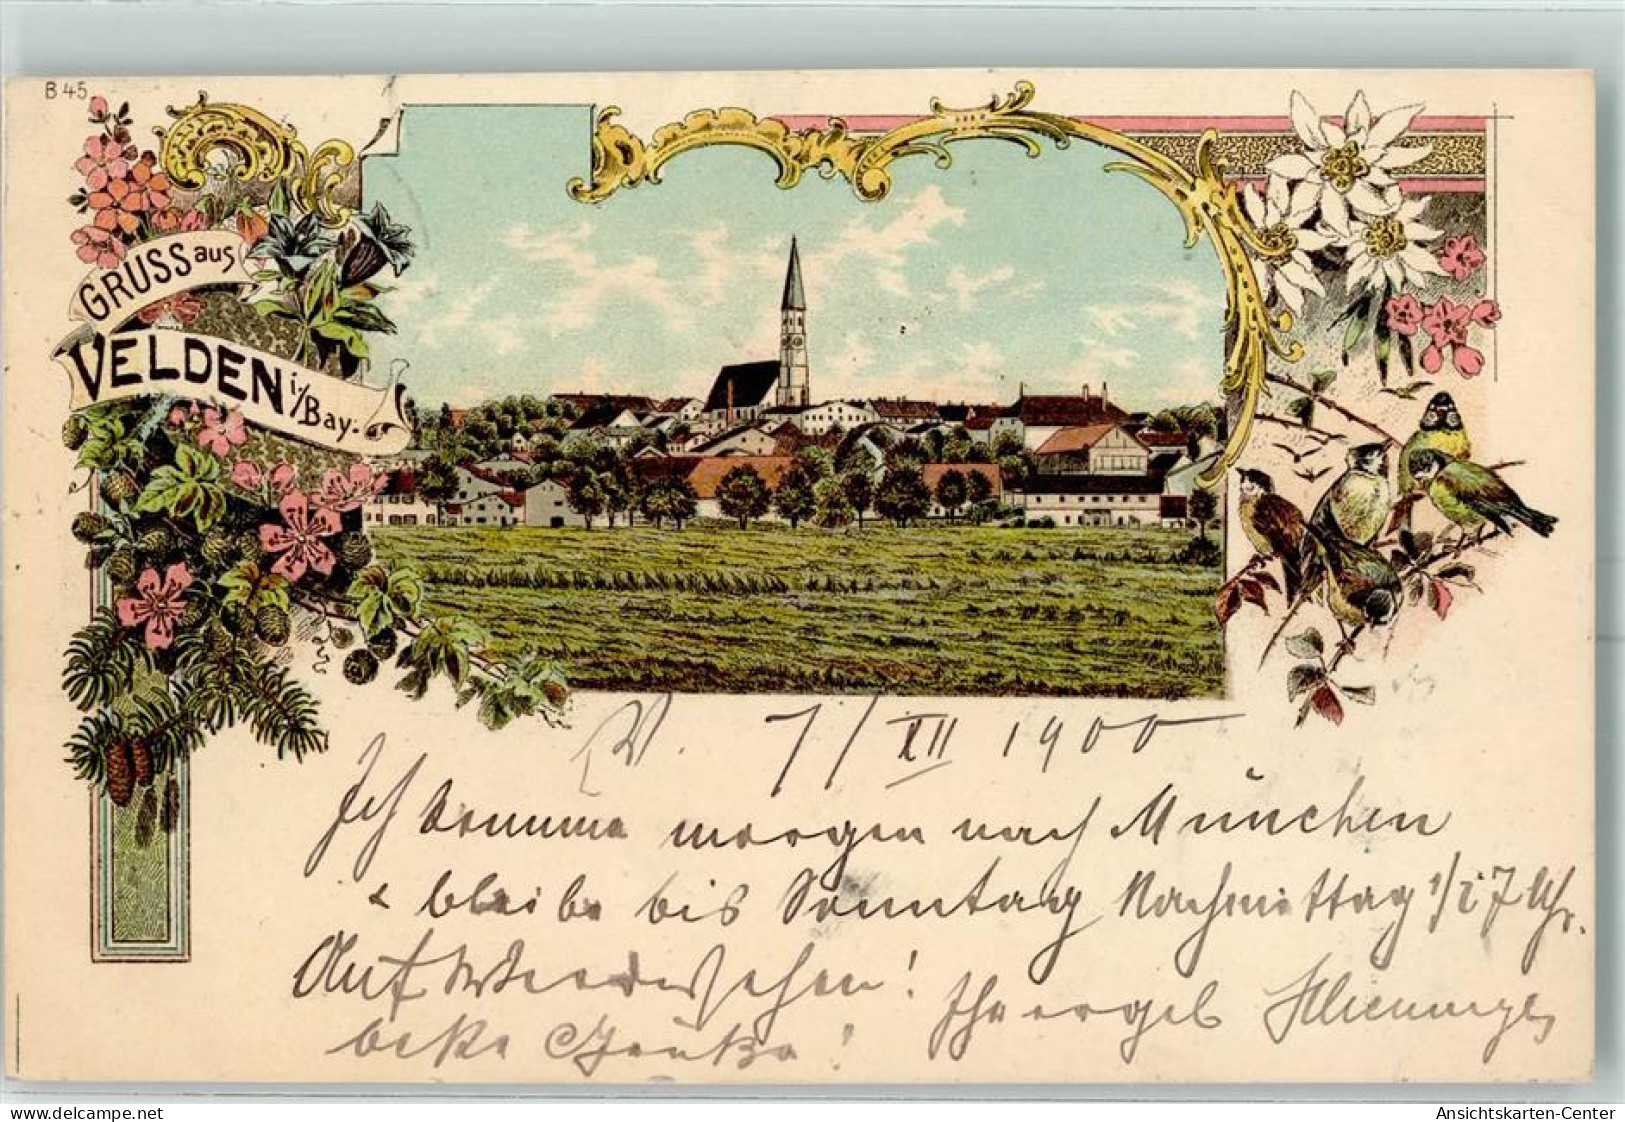 B 45.
GRUSS aus
VELDEN i/Bay.
V. 7/XII 1900
Ich komme morgen nach München
& bleibe bis Sonntag Nachmittag 1/2 7 Uhr.
Auf Wiedersehen!
beste Grüße! Ihr ergeb.
delcampe.net
Ansichtskarten-Center